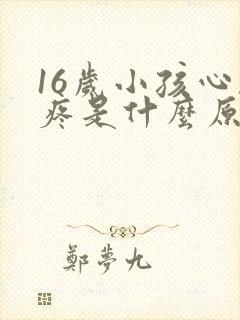 16歲小孩心
疼是什麼原
鄭夢九